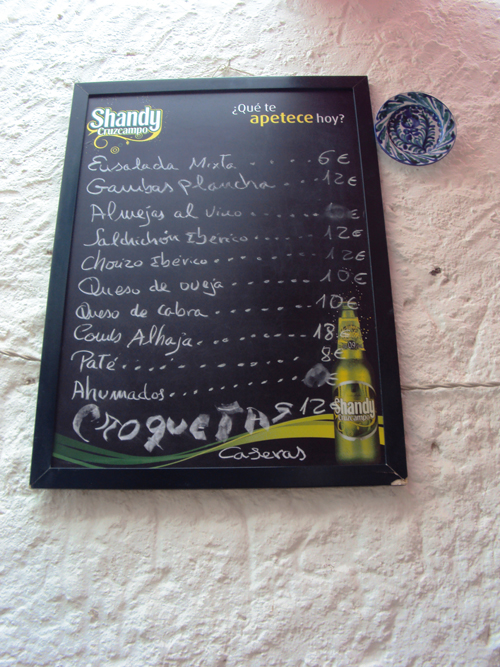 Shandy
Cruzcampo
¿Qué te
apetece hoy?
Ensalada Mixta .... 6€
Gambas Plancha ... 12€
Almejas al vino ...... €
Salchichón Ibérico ..... 12€
Chorizo Ibérico ...... 12€
Queso de oveja ..... 10€
Queso de cabra ...... 10€
Alhaja ........ 18€
Paté ............ 8€
Ahumados ......... €
CROQUETAS 12€
Caseras
Shandy
Cruzcampo